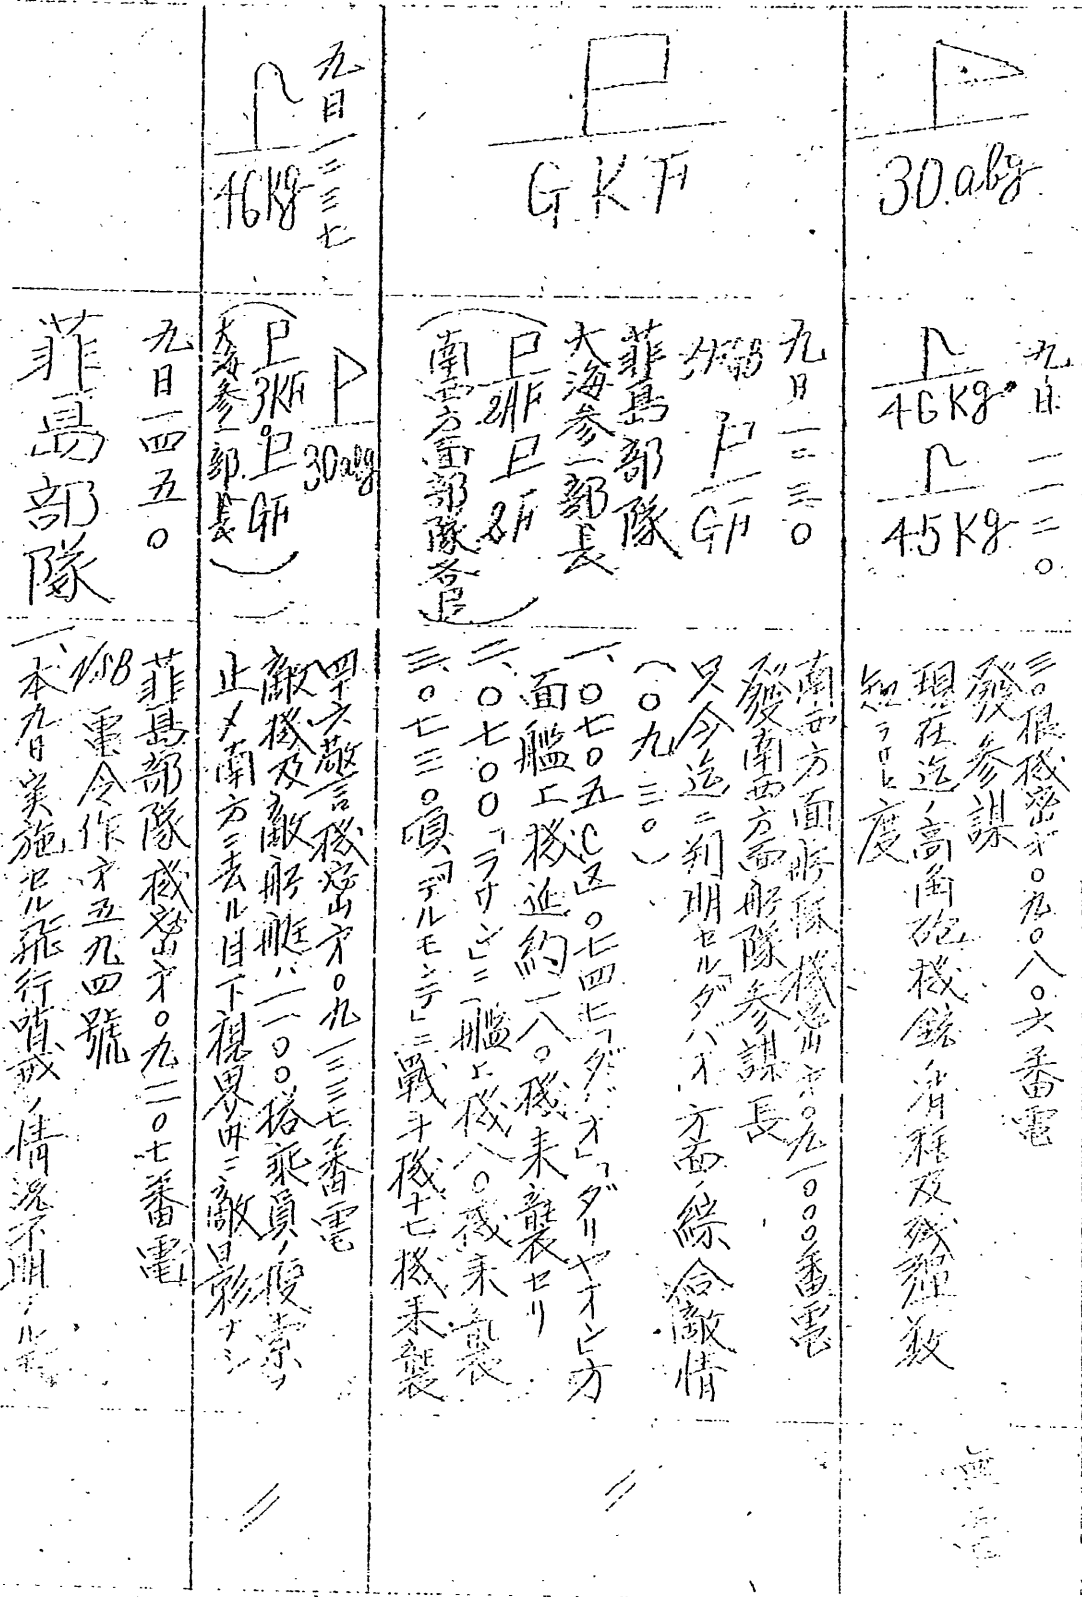 30.abg
九日一一二〇
46Kg
45Kg
三〇根機密才〇九〇八〇六番電
發参謀
現在迄ノ高角砲機銃ノ消耗及残弾数
知ラサレ度
無電
GKF
九日一二三〇
GF
菲島部隊
大海参一部長
2AF 8F
(南西方面部隊各
南西方面艦隊機密才〇九一〇〇〇番電
發南西方面艦隊参謀長
只今迄ニ判明セル「ダバオ」方面ノ綜合敵情
(〇九三〇)
一、〇七〇五C区〇七四七「ダバオ」「ダリヤオン」方
面艦上機延約一八〇機来襲セリ
二、〇七〇〇「ラサン」ニ艦上機八〇機来襲
三、〇七三〇頃「デルモンテ」ニ戰斗機十七機来襲
〃
九日一二三七
46Kg
30abg
(3KF GF
大海参一部長)
四十六警機密才〇九一三三七番電
敵機及敵船艇ハ一一〇〇搭乘員ノ捜索ヲ
止メ南方ニ去ル目下視界内ニ敵影ナシ
〃
九日一四五〇
菲島部隊
菲島部隊機密才〇九一二〇七番電
電令作才五九四號
一、本九日実施セル飛行哨戒ノ情況不明ナル